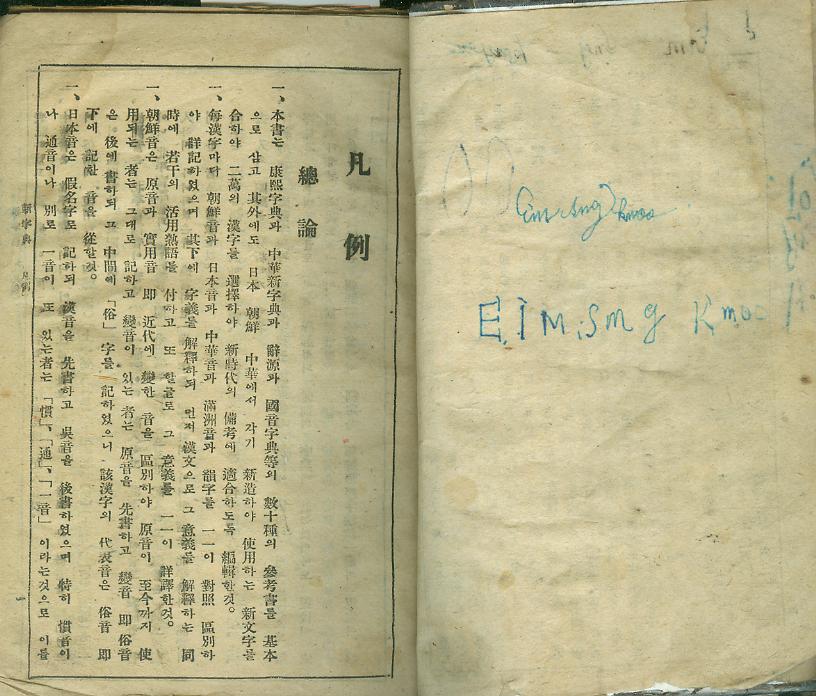 凡例
總論
一、本書는 康熙字典과 中華新字典과 辭源과 國音字典等의 數十種의 參考書를 基本
으로 삼고 其外에도 日本 朝鮮 中華에서 각기 新造하야 使用하는 新文字를
合하야 二萬의 漢字를 選擇하야 新時代의 備考에 適合하도록 編輯한것。
一、每漢字마다 朝鮮音과 日本音과 中華音과 滿洲音과 韻字를 一一이 對照 區別하
야 詳記하였으며 其下에 字義를 解釋하되 먼저 漢文으로 그 意義를 解釋하는 同
時에 若干의 活用熟語를 付하고 또 한글로 그 意義를 一一이 詳譯한것。
一、朝鮮音은 原音과 實用音 即 近代에 變한 音을 區別하야 原音이 至今까지 使
用되는 者는 그대로 記하고 變音이 있는 者는 原音을 先書하고 變音 即 俗音
은 後에 書하되 그 中間에 「俗」字를 記하였으니 該漢字의 代表音은 俗音 即
下에 記한 音을 從할것。
一、日本音은 假名字로 記하되 漢音을 先書하고 吳音을 後書하였으며 特히 慣音이
나 通音이나 別로 一音이 또 있는者는 「慣」、「通」、「一音」이라는것으로 이를
新字典 凡例